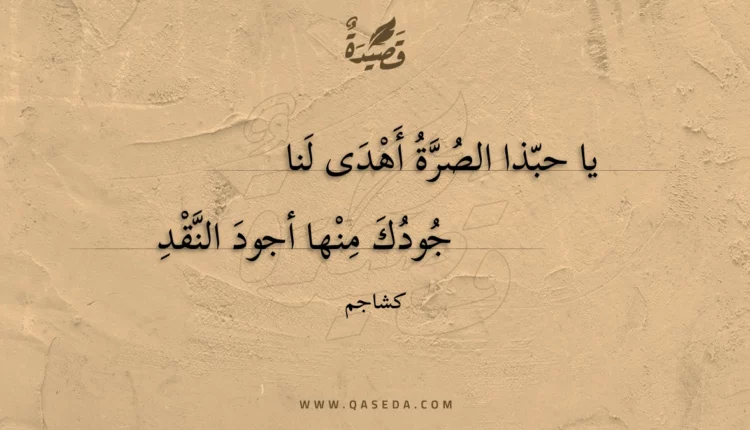 قَصِيْدَةٌ
يا حبّذا الصُرَّةُ أَهْدَى لَنا
جُودُكَ مِنْها أجودَ النَّقْدِ
كشاجم
WWW.QASEDA.COM